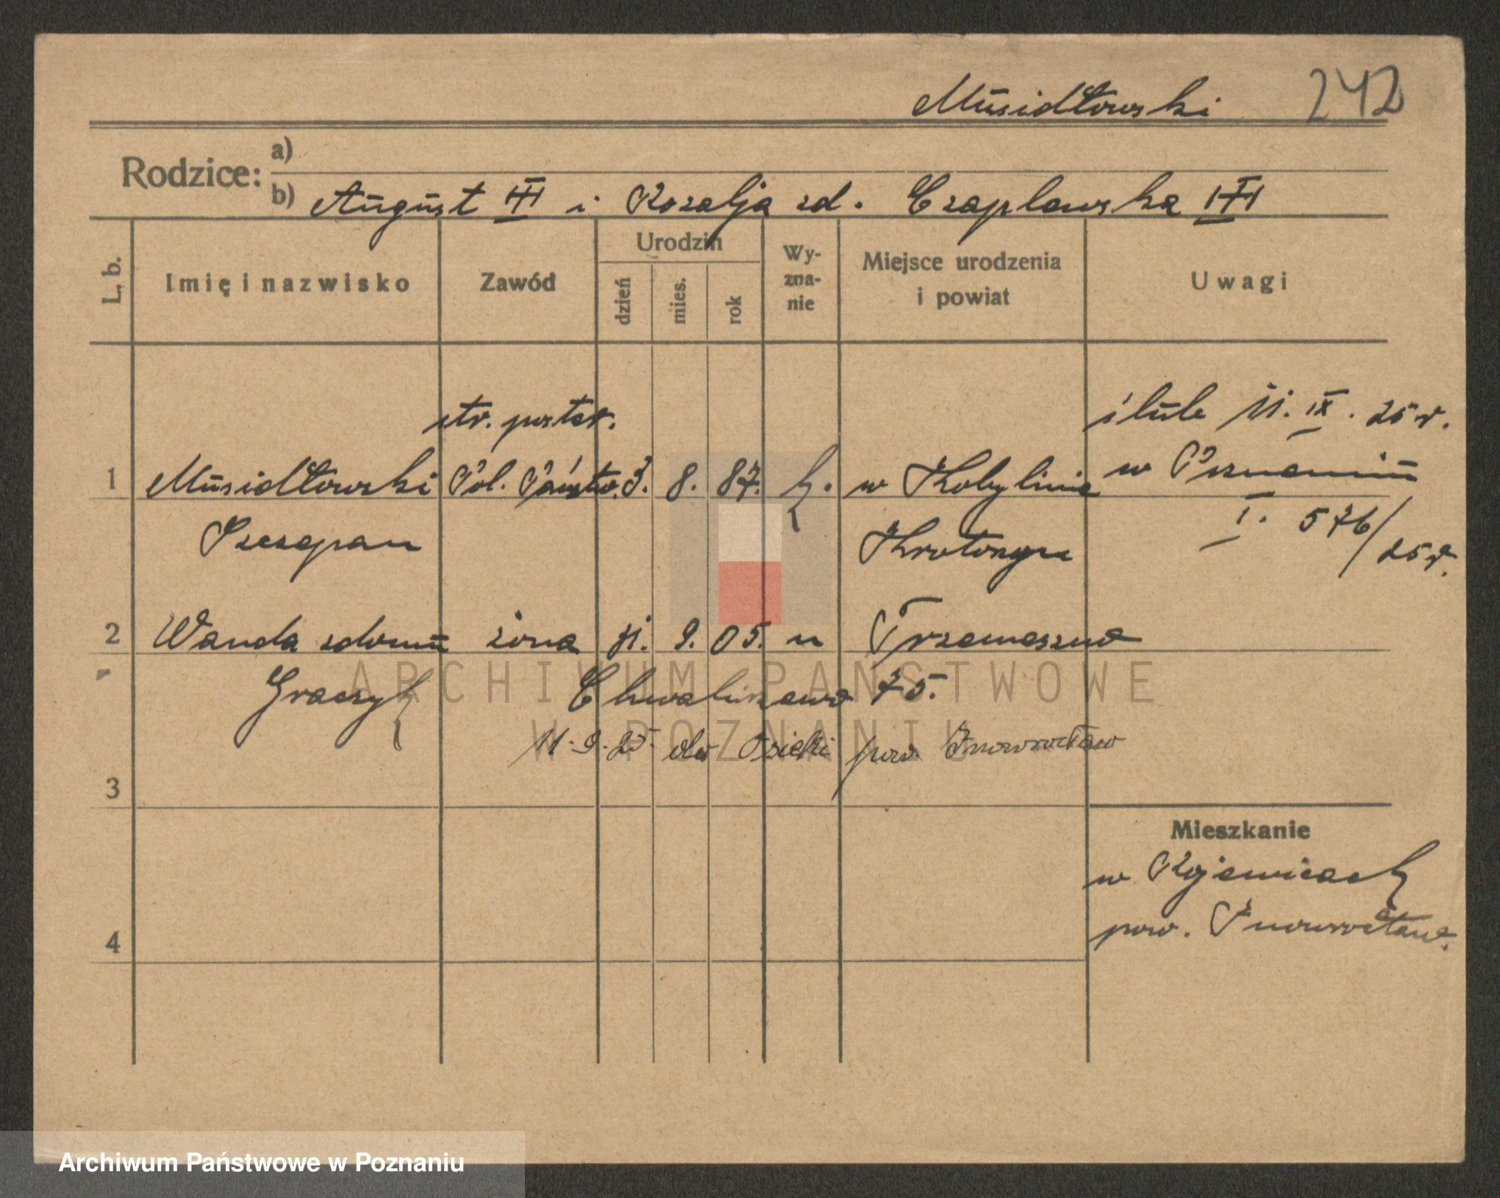 Musidłowski 242
Rodzice: a)
b) August i Rozalja zd. Czaplewska
L. b. Imię i nazwisko Zawód Urodzin dzień mies. rok Wy-zna-nie Miejsce urodzenia i powiat Uwagi
str. poster. ślub 11. IX. 25 r.
1 Musidłowski Pol. Państw. 3. 8. 87. k. w Kobylinie w Poznaniu
Szczepan Krotoszyn I. 576/25 r.
2 Wanda zdomu żona 11. 9. 05. " Trzemeszno
Graczyk Chwaliszewo 75.
11.9.25 do pow. Inowrocław
3
Mieszkanie
w Rojewicach
4 pow. Inowrocław.
ARCHIWUM PAŃSTWOWE
W POZNANIU
Archiwum Państwowe w Poznaniu